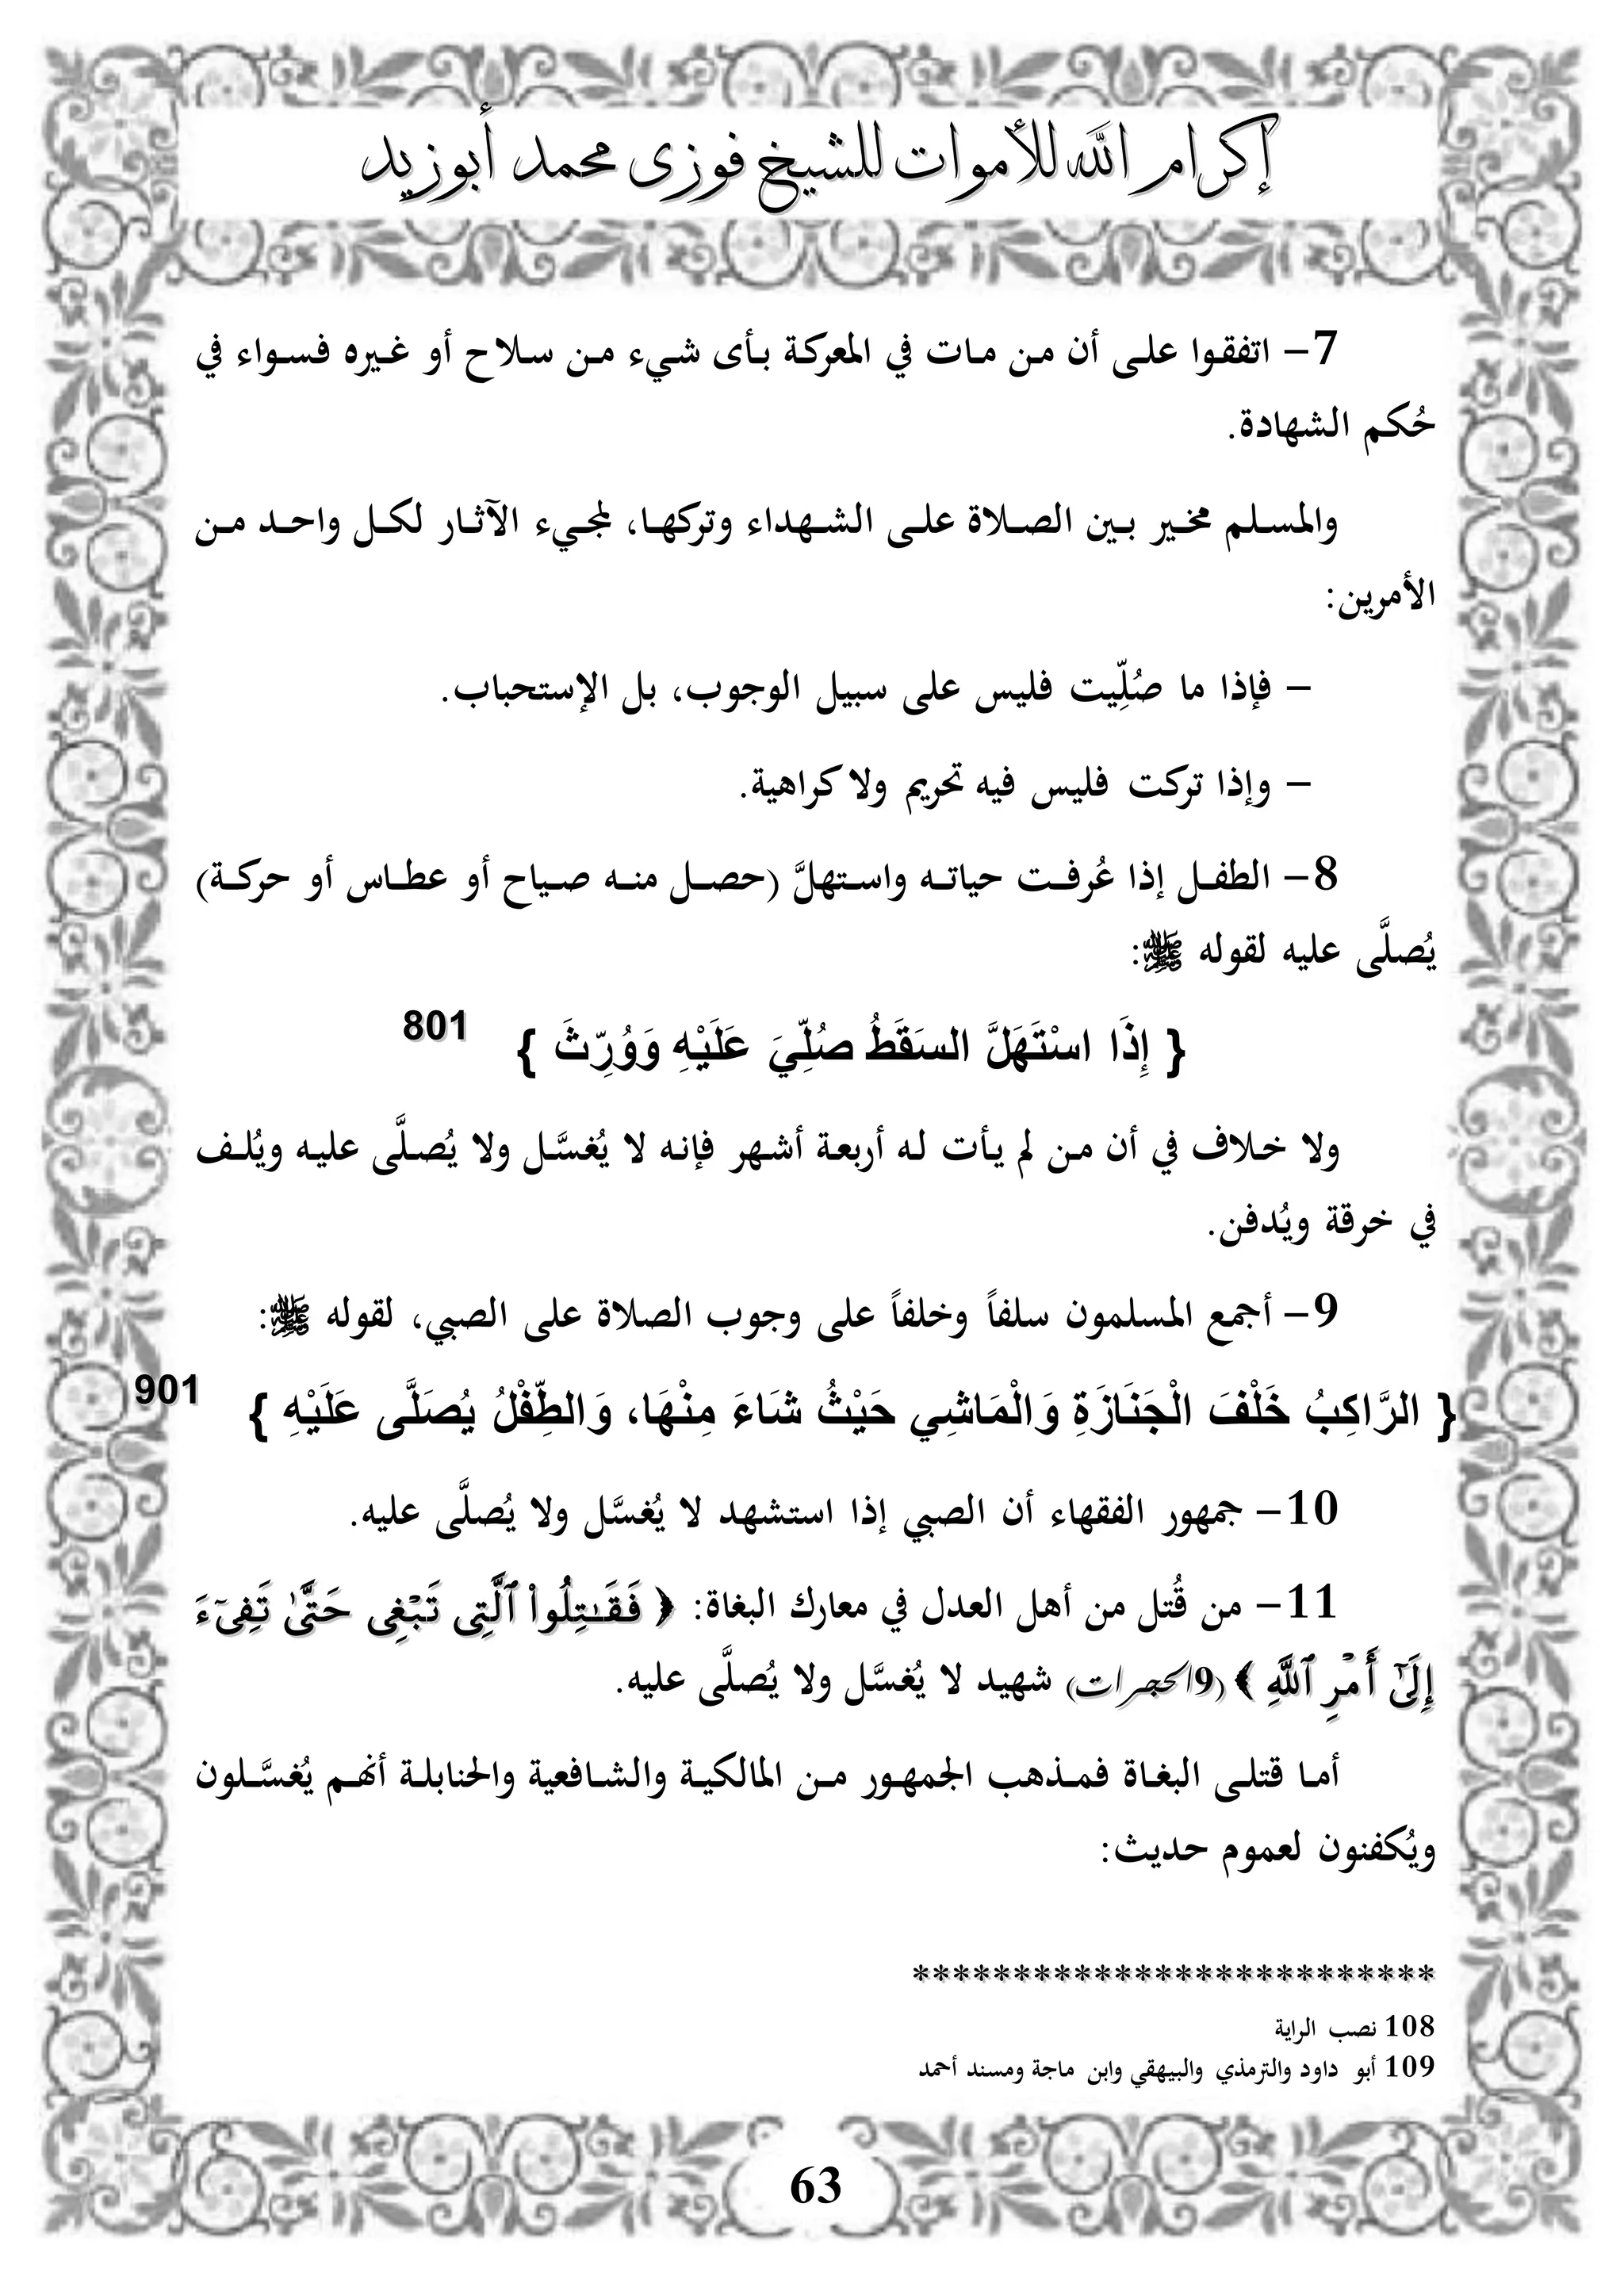 إكرام الله للأموات للشيخ فوزى محمد أبوزيد
7- اتفقوا على أن من مات في المعركة بأى شيء من سلاح أو غيره فسواء في
حُكم الشهادة.
والمسلم مخير بين الصلاة على الشهداء وتركها، لمجيء الآثار لكل واحد من
الأمرين:
- فإذا ما صُلِّيت فليس على سبيل الوجوب، بل الإستحباب.
- وإذا تركت فليس فيه تحريم ولا كراهية.
8- الطفل إذا عُرفت حياته واستهلَّ (حصل منه صياح أو عطاس أو حركة)
يُصلَّى عليه لقوله ﷺ:
{ إِذَا اسْتَهَلَّ السَقَطُ صُلِّيَ عَلَيْهِ وَوُرِّثَ } 801
ولا خلاف في أن من لم يأت له أربعة أشهر فإنه لا يُغسَّل ولا يُصلَّى عليه ويُلف
في خرقة ويُدفن.
9- أجمع المسلمون سلفاً وخلفاً على وجوب الصلاة على الصبي، لقوله ﷺ:
{ الرَّاكِبُ خَلْفَ الْجَنَازَةِ وَالْمَاشِي حَيْثُ شَاءَ مِنْهَا، وَالطِّفْلُ يُصَلَّى عَلَيْهِ } 901
10- جمهور الفقهاء أن الصبي إذا استشهد لا يُغسَّل ولا يُصلَّى عليه.
11- من قُتل من أهل العدل في معارك البغاة: ﴿ فَقَـٰتِلُوا۟ ٱلَّتِى تَبْغِى حَتَّىٰ تَفِىٓءَ
إِلَىٰٓ أَمْرِ ٱللَّهِ ﴾ (9الحجرات) شهيد لا يُغسَّل ولا يُصلَّى عليه.
أما قتلى البغاة فمذهب الجمهور من المالكية والشافعية والحنابلة أنهم يُغسَّلون
ويُكفنون لعموم حديث:
**************************
108 نصب الراية
109 أبو داود والترمذي والبيهقي وابن ماجة ومسند أحمد
63